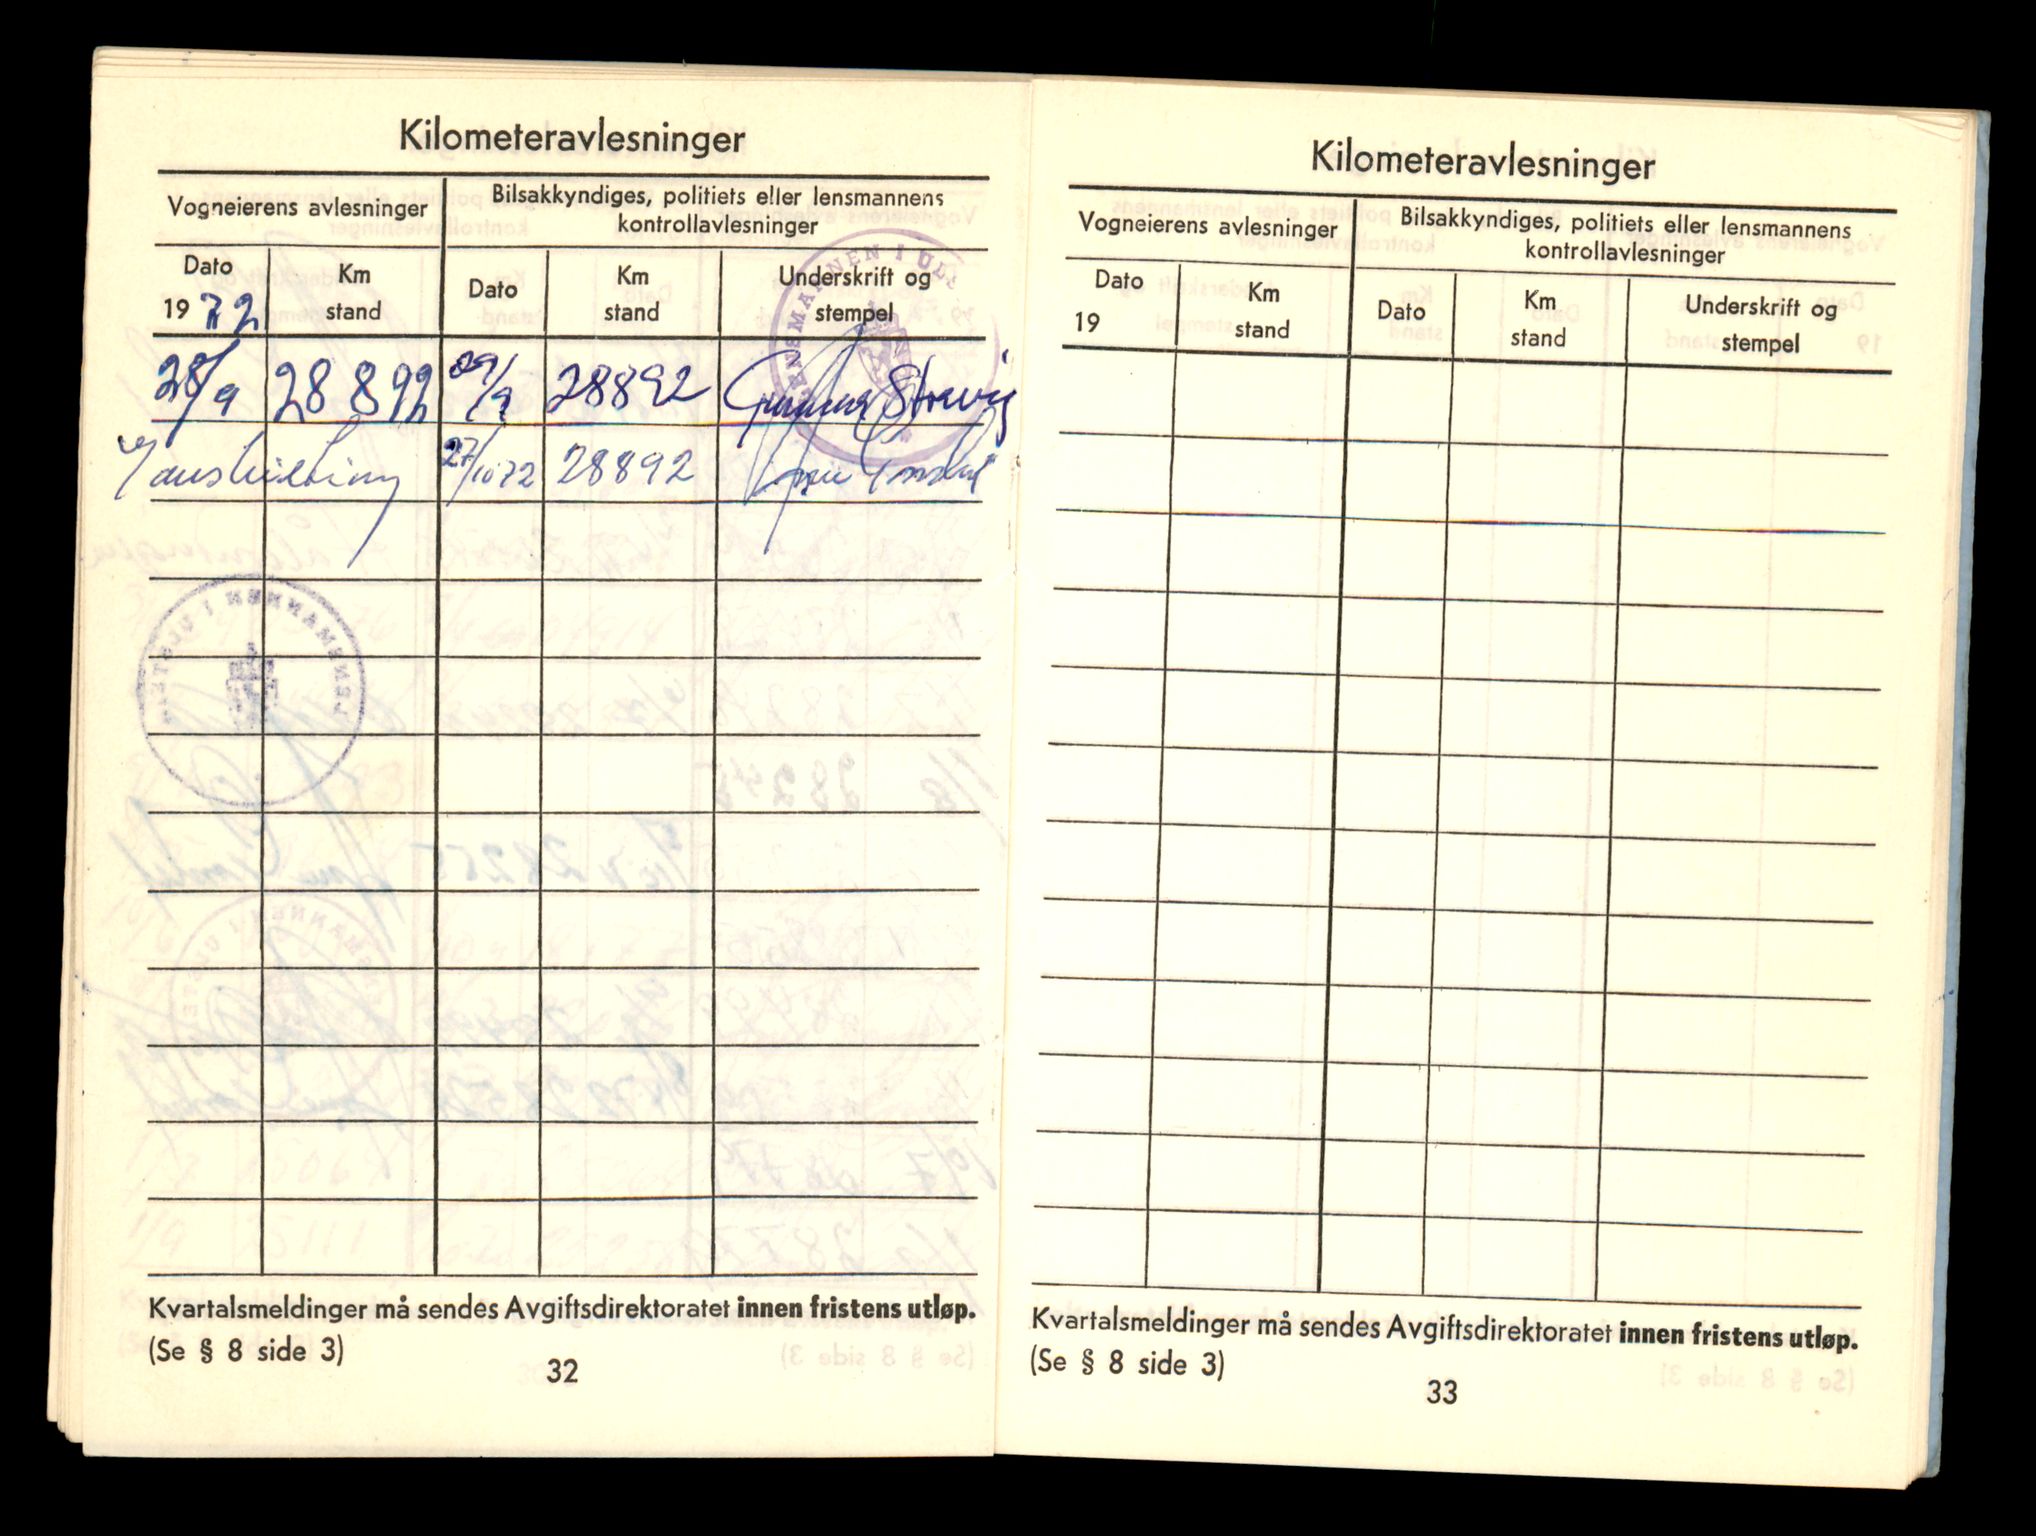 Kilometeravlesninger
Vogneierens avlesninger
Bilsakkyndiges, politiets eller lensmannens
kontrollavlesninger
Dato
1972
Km
stand
Dato
Km
stand
Underskrift og
stempel
LENSMANNEN I UL
28/9 28 892 29/9 28892 Gunnar
27/10 72 28892
LENSMANNEN I
Kvartalsmeldinger må sendes Avgiftsdirektoratet innen fristens utløp.
(Se § 8 side 3)
32
Kilometeravlesninger
Vogneierens avlesninger
Bilsakkyndiges, politiets eller lensmannens
kontrollavlesninger
Dato
19
Km
stand
Dato
Km
stand
Underskrift og
stempel
Kvartalsmeldinger må sendes Avgiftsdirektoratet innen fristens utløp.
(Se § 8 side 3)
33